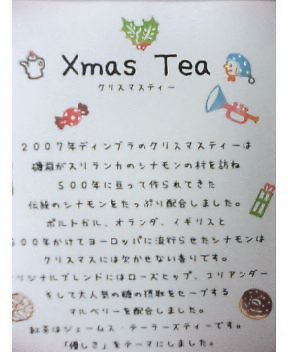 Xmas Tea
クリスマスティー
2007年ディンブラのクリスマスティーは
磯淵がスリランカのシナモンの村を訪ね
500年に亘って作られてきた
伝統のシナモンをたっぷり配合しました。
ポルトガル、オランダ、イギリスと
500年かけてヨーロッパに流行らせたシナモンは
クリスマスには欠かせない香りです。
リジナルブレンドにはローズヒップ、コリアンダー
そして大人気の糖の摂取をセーブする
マルベリーを配合しました。
紅茶はジェームス・テーラーズティーです。
「優しさ」をテーマにしました。